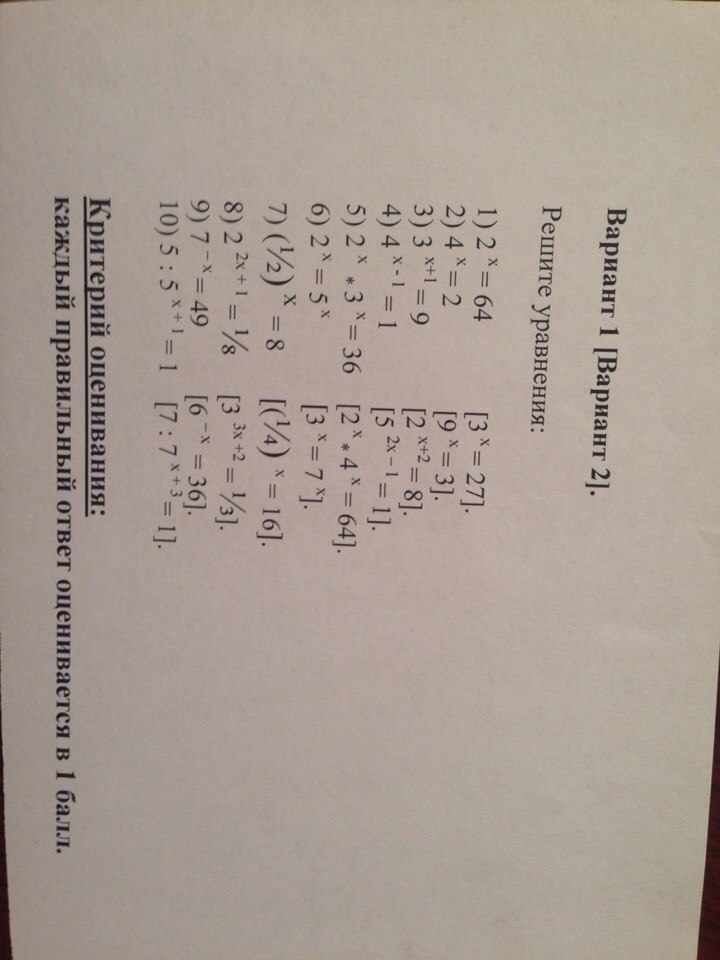 Вариант 1 [Вариант 2].
Решите уравнения:
1) 2 ˣ = 64 [3 ˣ = 27].
2) 4 ˣ = 2 [9 ˣ = 3].
3) 3 ˣ⁺¹ = 9 [2 ˣ⁺² = 8].
4) 4 ˣ ⁻ ¹ = 1 [5 ²ˣ ⁻ ¹ = 1].
5) 2 ˣ * 3 ˣ = 36 [2 ˣ * 4 ˣ = 64].
6) 2 ˣ = 5 ˣ [3 ˣ = 7 ˣ].
7) (½) ˣ = 8 [(¼) ˣ = 16].
8) 2 ²ˣ ⁺ ¹ = ⅛ [3 ³ˣ ⁺ ² = ⅓].
9) 7 ⁻ ˣ = 49 [6 ⁻ ˣ = 36].
10) 5 : 5 ˣ ⁺ ¹ = 1 [7 : 7 ˣ ⁺ ³ = 1].
Критерий оценивания:
каждый правильный ответ оценивается в 1 балл.